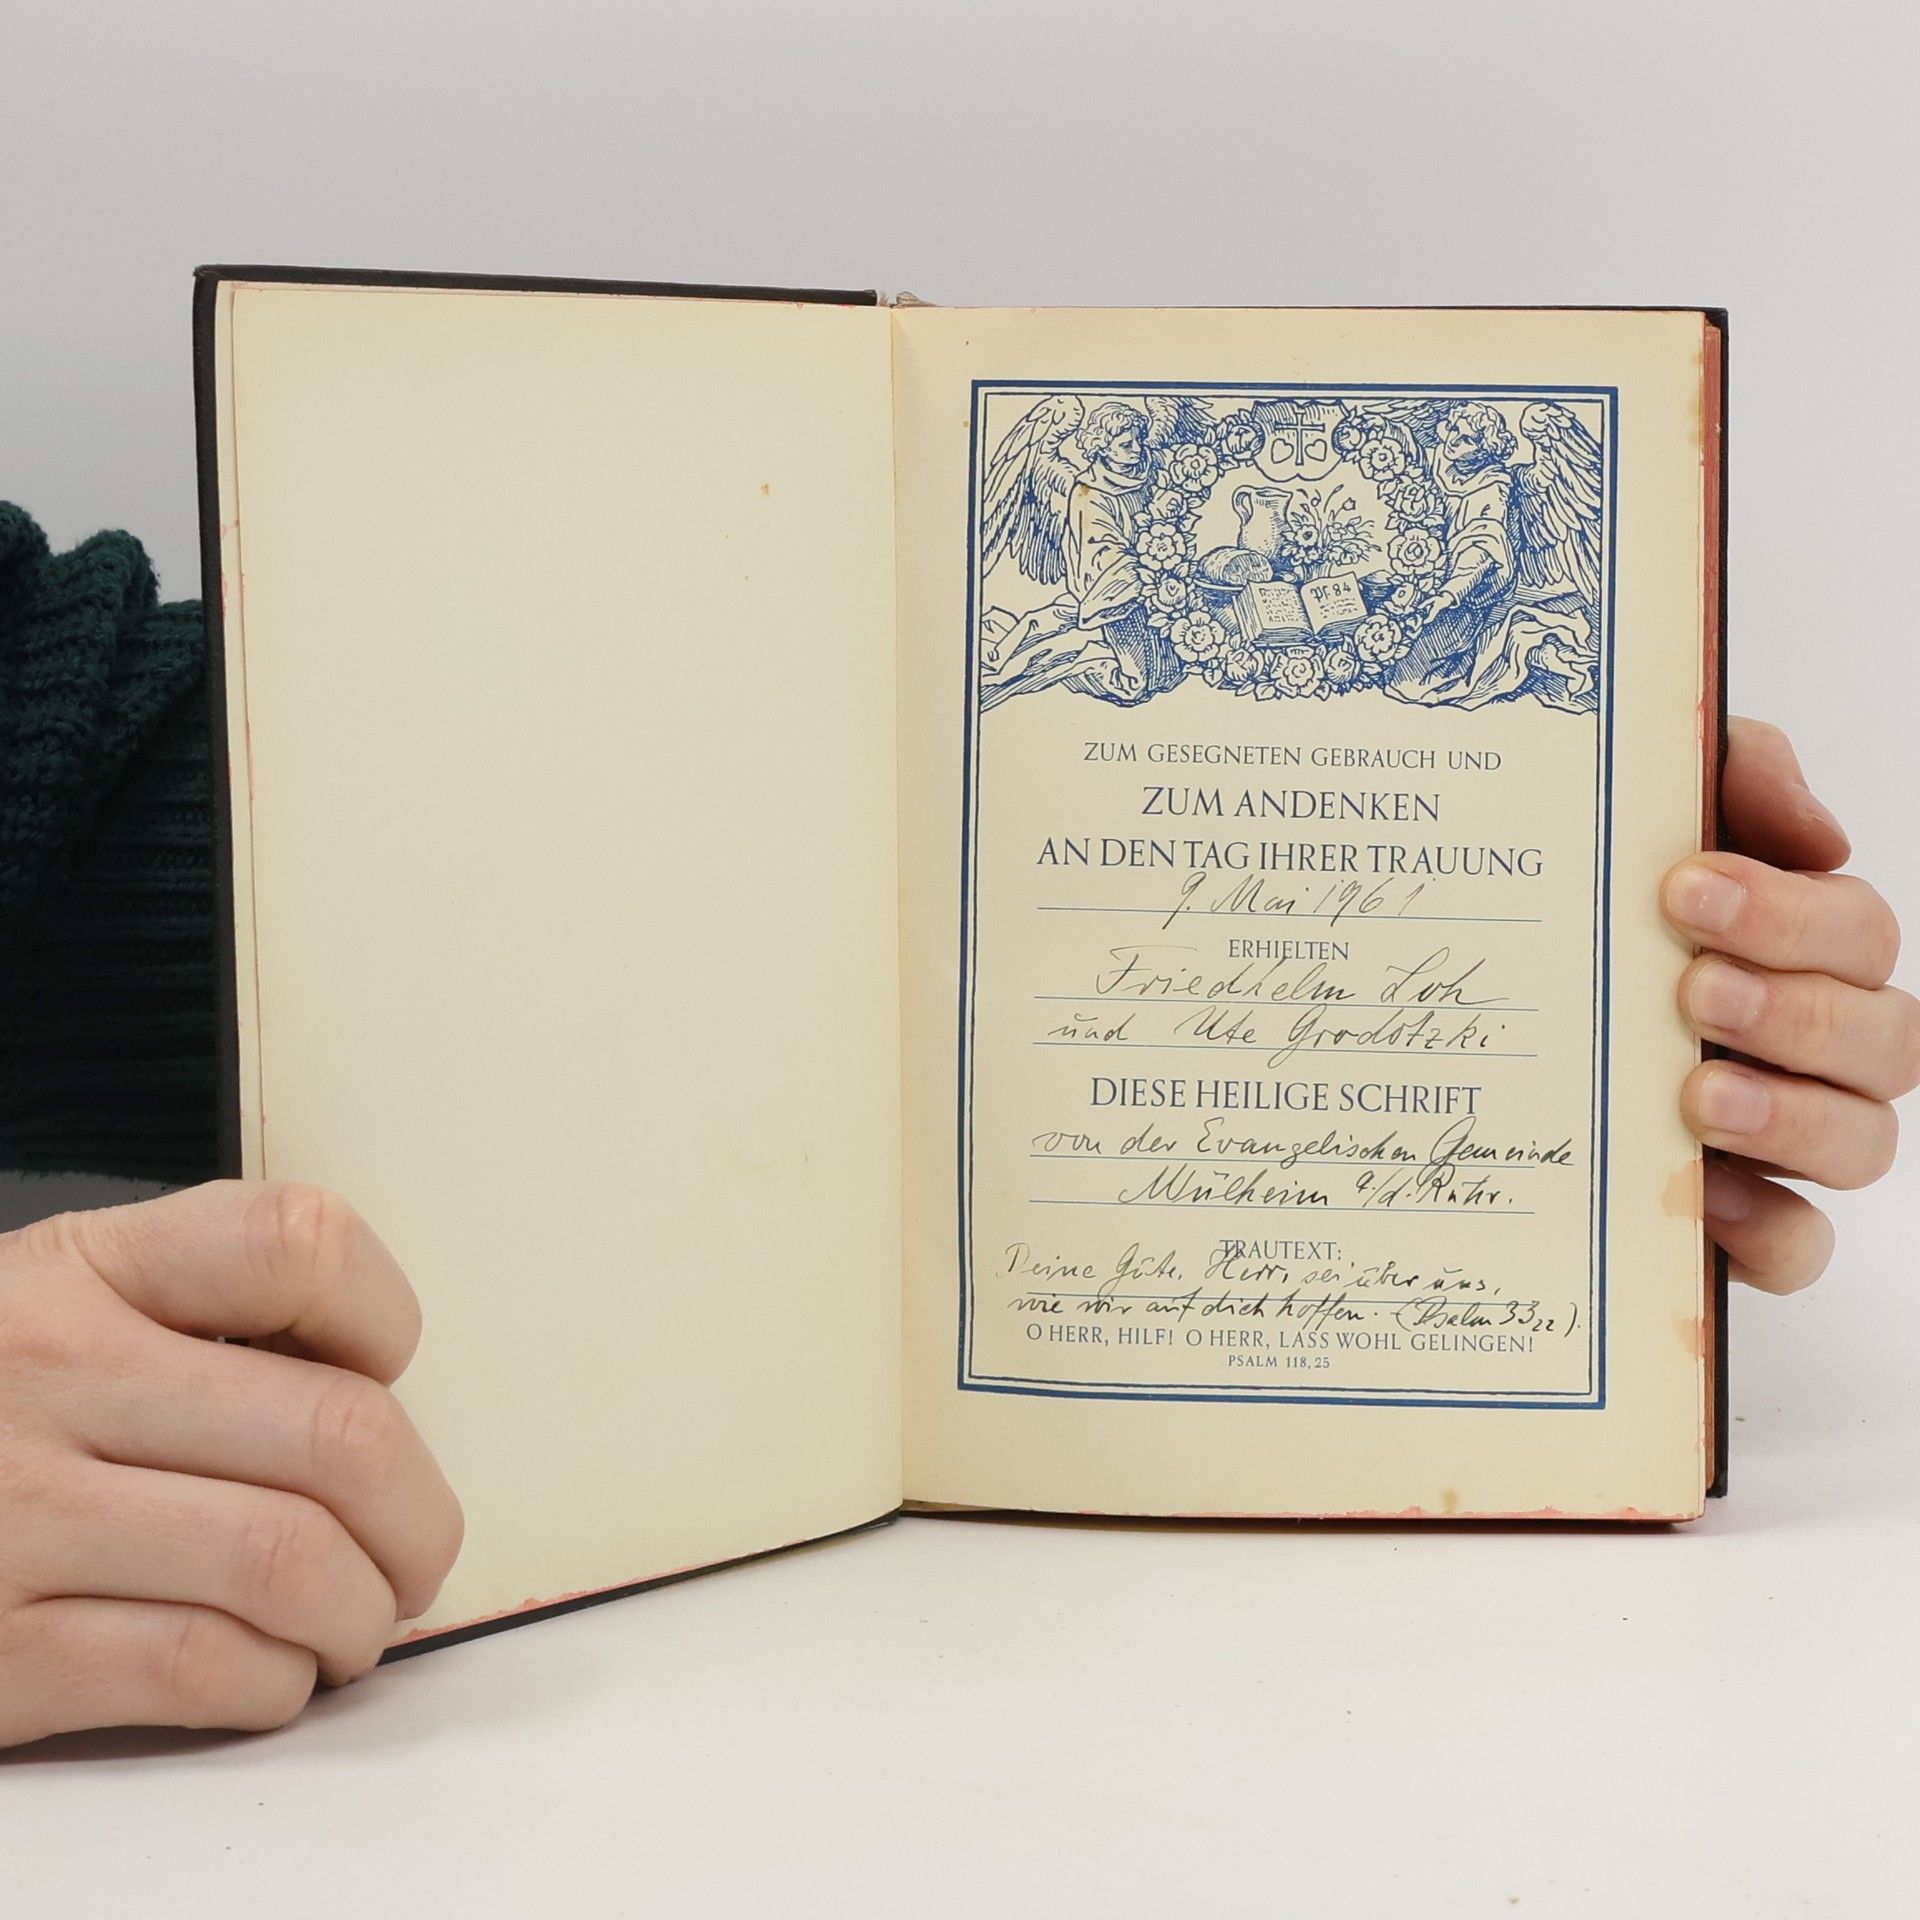 Pſ 84
ZUM GESEGNETEN GEBRAUCH UND
ZUM ANDENKEN
AN DEN TAG IHRER TRAUUNG
9. Mai 1961
ERHIELTEN
Friedhelm Loh
und Ute Grodotzki
DIESE HEILIGE SCHRIFT
von der Evangelischen Gemeinde
Mülheim a./d. Ruhr.
TRAUTEXT:
Deine Güte, Herr, sei über uns,
wie wir auf dich hoffen. (Psalm 33 22).
O HERR, HILF! O HERR, LASS WOHL GELINGEN!
PSALM 118, 25